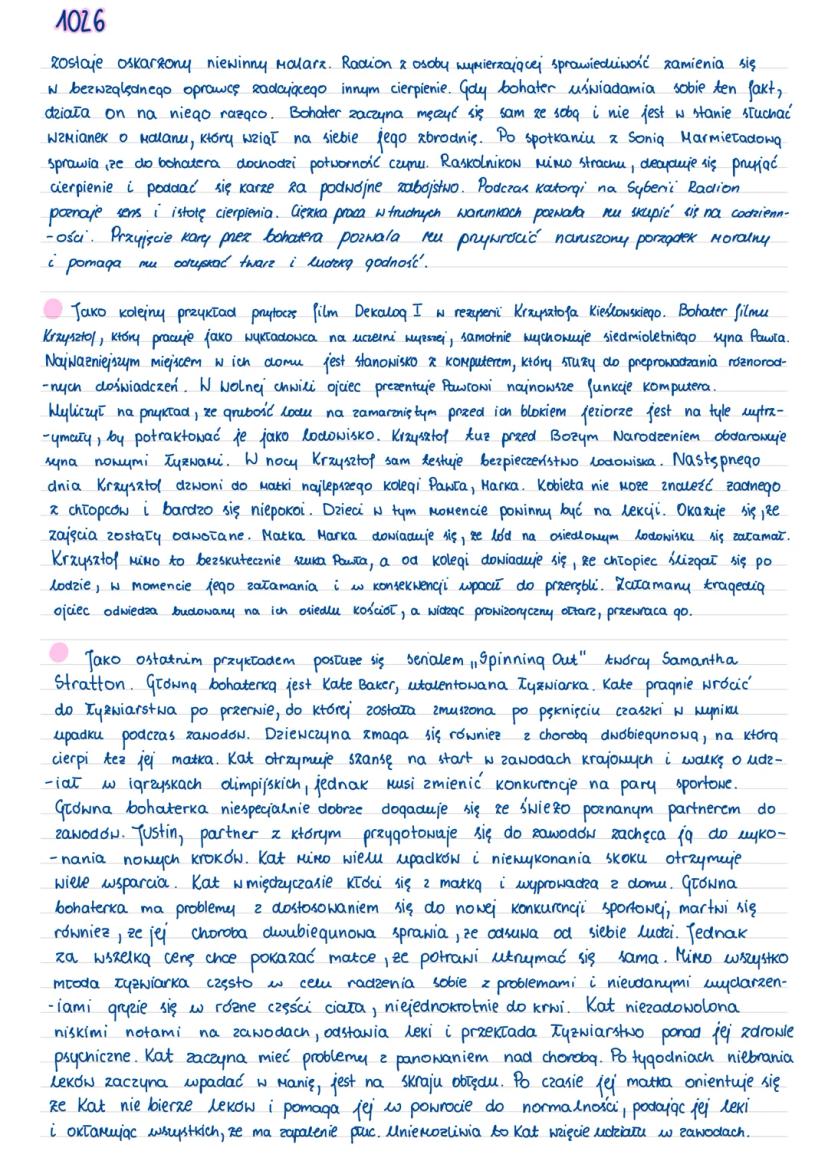 1026
zostaje oskarżony niewinny malarz. Radion z osoby wymierzającej sprawiedliwość zamienia się
w bezwzględnego oprawcę zadającego innym cierpienie. Gdy bohater uświadamia sobie ten fakt,
działa on na niego rażąco. Bohater zaczyna męczyć się sam ze sobą i nie jest w stanie słuchać
wzmianek o malarzu, który wziął na siebie jego zbrodnię. Po spotkaniu z Sonią Marmieładową
sprawia, że do bohatera dochodzi potworność czynu. Raskolnikow mimo strachu, decyduje się przyjąć
cierpienie i poddać się karze za podwójne zabójstwo. Podczas katorgi na Syberii Radion
poznaje sens i istotę cierpienia. Ciężka praca w trudnych warunkach pozwala mu skupić się na codzienn-
-ości. Przyjęcie kary przez bohatera pozwala mu przywrócić naruszony porządek moralny
i pomaga mu odzyskać twarz i ludzką godność.
Jako kolejny przykład przytoczę film Dekalog I w reżyserii Krzysztofa Kieślowskiego. Bohater filmu
Krzysztof, który pracuje jako wykładowca na uczelni wyższej, samotnie wychowuje siedmioletniego syna Pawła.
Najważniejszym miejscem w ich domu jest stanowisko z komputerem, który służy do przeprowadzania różnorod-
-nych doświadczeń. W wolnej chwili ojciec prezentuje Pawłowi najnowsze funkcje komputera.
Wyliczył na przykład, że grubość lodu na zamarzniętym przed ich blokiem jeziorze jest na tyle wytrz-
-ymały, by potraktować je jako lodowisko. Krzysztof tuż przed Bożym Narodzeniem obdarowuje
syna nowymi łyżwami. W nocy Krzysztof sam testuje bezpieczeństwo lodowiska. Następnego
dnia Krzysztof dzwoni do matki najlepszego kolegi Pawła, Marka. Kobieta nie może znaleźć żadnego
z chłopców i bardzo się niepokoi. Dzieci w tym momencie powinny być na lekcji. Okazuje się, że
zajęcia zostały odwołane. Matka Marka dowiaduje się, że lód na osiedlowym lodowisku się załamał.
Krzysztof mimo to bezskutecznie szuka Pawła, a od kolegi dowiaduje się, że chłopiec ślizgał się po
lodzie, w momencie jego załamania i w konsekwencji wpadł do przerębli. Załamany tragedią
ojciec odwiedza budowany na ich osiedlu kościół, a widząc prowizoryczny ołtarz, przewraca go.
Jako ostatnim przykładem posłużę się serialem „Spinning Out" twórcy Samantha
Stratton. Główną bohaterką jest Kate Baker, utalentowana łyżwiarka. Kate pragnie wrócić
do łyżwiarstwa po przerwie, do której została zmuszona po pęknięciu czaszki w wyniku
upadku podczas zawodów. Dziewczyna zmaga się również z chorobą dwubiegunową, na którą
cierpi też jej matka. Kat otrzymuje szansę na start w zawodach krajowych i walkę o udz-
-iał w igrzyskach olimpijskich, jednak musi zmienić konkurencje na pary sportowe.
Główna bohaterka niespecjalnie dobrze dogaduje się ze świeżo poznanym partnerem do
zawodów. Justin, partner z którym przygotowuje się do zawodów zachęca ją do wyko-
-nania nowych kroków. Kat mimo wielu upadków i niewykonania skoku otrzymuje
wiele wsparcia. Kat w międzyczasie kłóci się z matką i wyprowadza z domu. Główna
bohaterka ma problemy z dostosowaniem się do nowej konkurencji sportowej, martwi się
również, że jej choroba dwubiegunowa sprawia, że odsuwa od siebie ludzi. Jednak
za wszelką cenę chce pokazać matce, że potrafi utrzymać się sama. Mimo wszystko
młoda łyżwiarka często w celu radzenia sobie z problemami i nieudanymi wydarzen-
-iami gryzie się w różne części ciała, niejednokrotnie do krwi. Kat niezadowolona
niskimi notami na zawodach, odstawia leki i przekłada łyżwiarstwo ponad jej zdrowie
psychiczne. Kat zaczyna mieć problemy z panowaniem nad chorobą. Po tygodniach niebrania
leków zaczyna wpadać w manię, jest na skraju obłędu. Po czasie jej matka orientuje się
że Kat nie bierze leków i pomaga jej w powrocie do normalności, podając jej leki
i okłamując wszystkich, że ma zapalenie płuc. Uniemożliwia to Kat wzięcie udziału w zawodach.